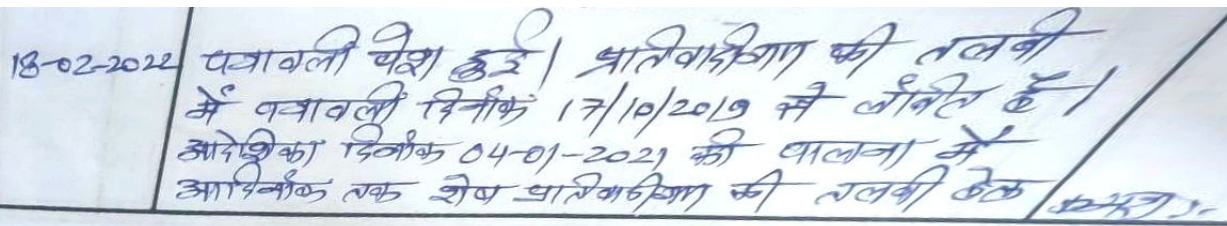 18-02-2022 पत्रावली पेश हुई। प्रतिवादीगण की तलबी
में पत्रावली दिनांक 17/10/2019 से लंबित है।
आदेशिका दिनांक 04-01-2021 की पालना में
आदिनांक तक शेष प्रतिवादीगण की तलबी हेतु